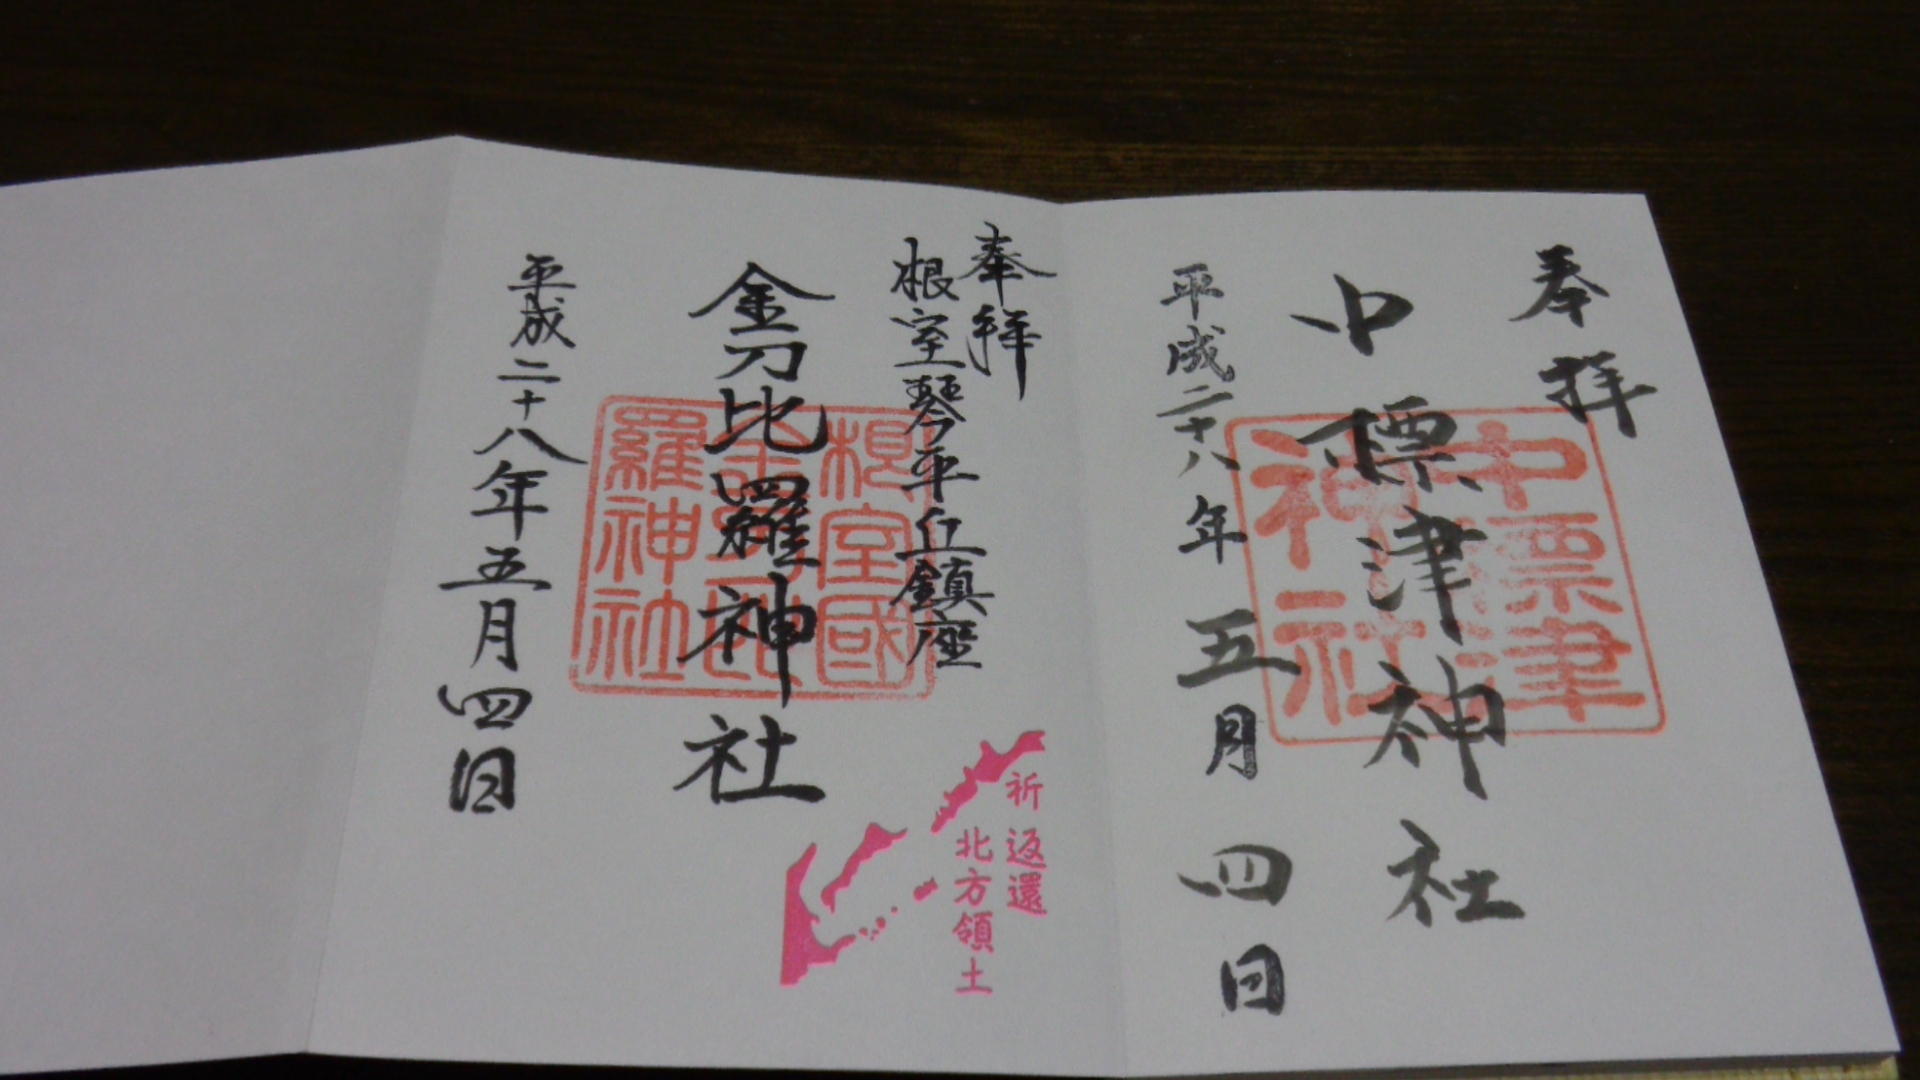 奉拝
中標津神社
中標津
神社
平成二十八年五月四日
奉拝
根室琴平丘鎮座
金刀比羅神社
根室國
羅神社
平成二十八年五月四日
祈返還
北方領土